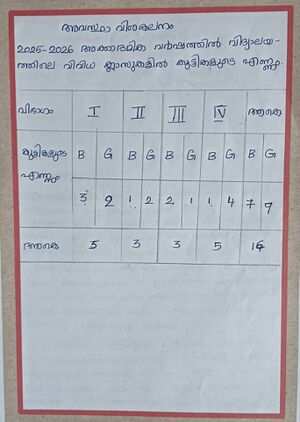 അവസ്ഥാ വിശകലനം
2025-2026 അക്കാദമിക വർഷത്തിൽ വിദ്യാലയ-
ത്തിലെ വിവിധ ക്ലാസുകളിൽ കുട്ടികളുടെ എണ്ണം.
വിഭാഗം I II III IV ആകെ
കുട്ടികളുടെ എണ്ണം B G B G B G B G B G
3 2 1 2 2 1 1 4 7 9
ആകെ 5 3 3 5 16